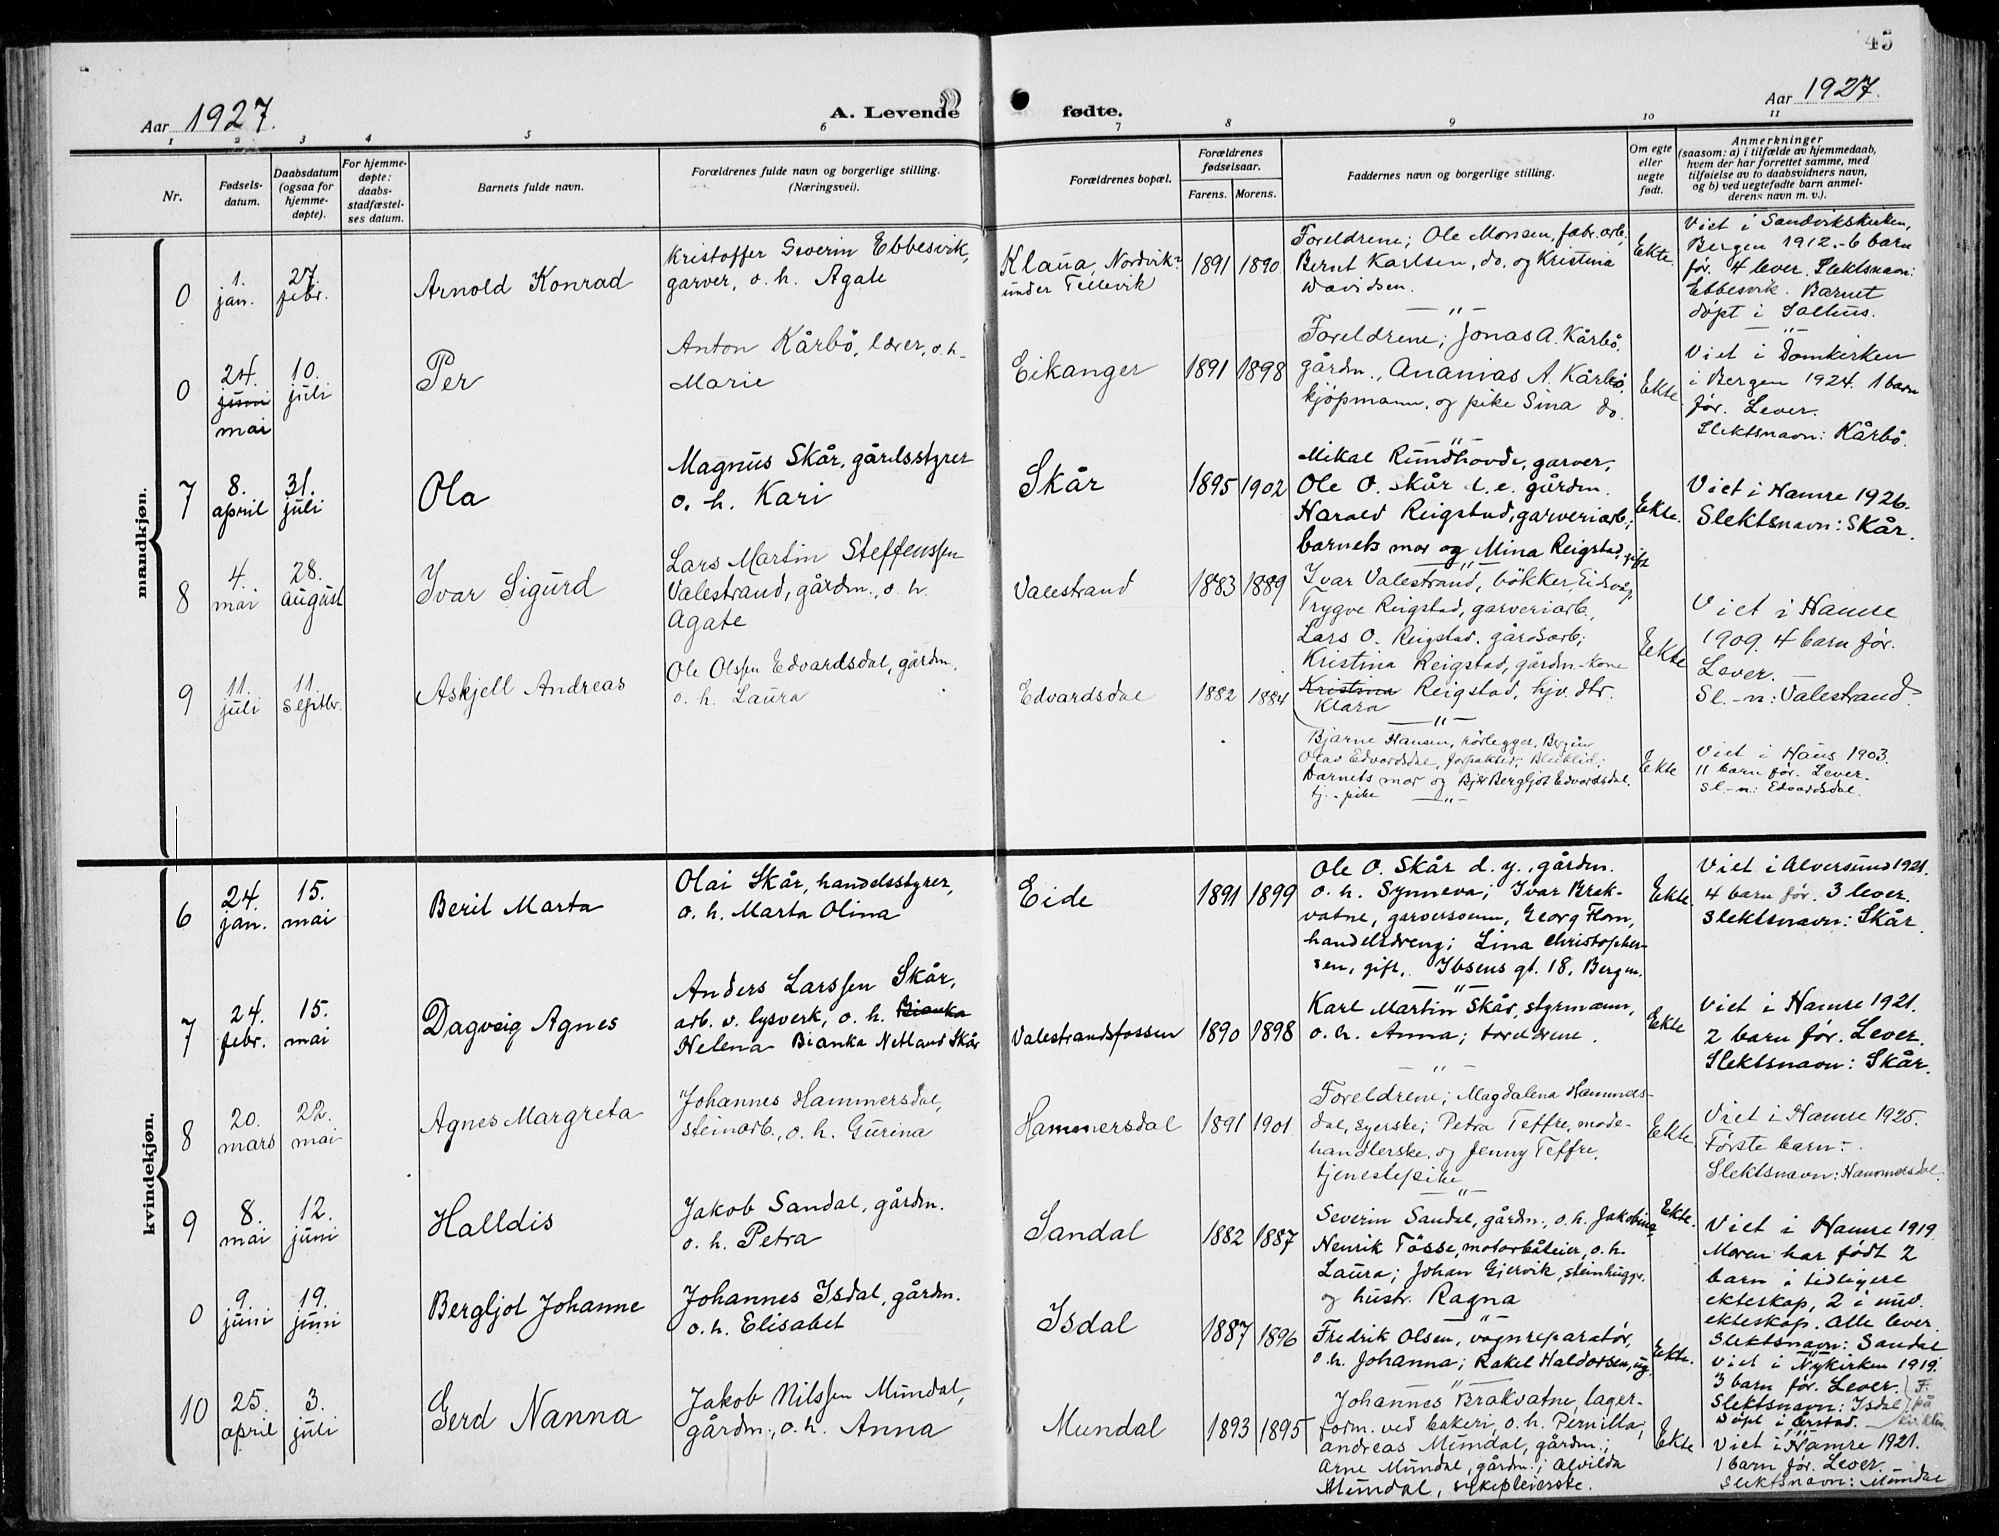 45
Aar 1927.
A. Levende fødte.
Aar 1927.
1 2 3 4 5 6 7 8 9 10 11
Nr.
Fødsels-
datum.
Daabsdatum
(ogsaa for
hjemme-
døpte).
For hjemme-
døpte:
daabs-
stadfæstel-
ses datum.
Barnets fulde navn.
Forældrenes fulde navn og borgerlige stilling.
(Næringsvei).
Forældrenes bopæl.
Forældrenes
fødselsaar.
Farens. Morens.
Faddernes navn og borgerlige stilling.
Om egte
eller
uegte
født.
Anmerkninger
(saasom: a) i tilfælde av hjemmedaab,
hvem der har forrettet samme, med
tilføielse av to daabsvidners navn,
og b) ved uegtefødte barn anmel-
derens navn m. v.).
mandkjøn.
0
1.
jan.
27.
febr.
Arnold Konrad
Kristoffer Severin Ebbesvik,
garver, o. h. Agate
Klaua, Nordvik
under Tellevik
1891 1890
Foreldrene; Ole Monsen, fabr.arb.,
Bernt Karlsen, do. og Kristina
Davidsen.
Ekte.
Viet i Sandvikskirken,
Bergen 1912. - 6 barn
før. 4 lever. Slektsnavn:
Ebbesvik. Barnet
døpt i Salhus.
0
24.
juni
mai
10.
juli
Per
Anton Kårbö, lærer, o. h.
Marie
Eikanger
1891 1898
Foreldrene; Jonas A. Kårbö,
gårdm., Ananias A. Kårbö,
kjöpmann, og pike Sina do.
Ekte.
Viet i Domkirken
i Bergen 1924. 1 barn
før. Lever.
Slektsnavn: Kårbö.
7
8.
april
31.
juli
Ola
Magnus Skår, gårdsstyrer
o. h. Kari
Skår
1895 1902
Mikal Rundhovde, garver,
Ole O. Skår d. e. gårdm.
Harald Reigstad, garveriarb.;
barnets mor og Mina Reigstad, gift
Ekte.
Viet i Hamre 1926.
Slektsnavn: Skår.
8
4.
mai
28.
august
Ivar Sigurd
Lars Martin Steffenssen
Valestrand, gårdm., o. h.
Agate
Valestrand
1883 1889
Ivar Valestrand, bökker, Eidsvåg,
Trygve Reigstad, garveriarb.,
Lars O. Reigstad, gårdsarb.;
Kristina Reigstad, gårdm.-kone
Kristina Reigstad, hjv. dtr.
Klara
Ekte
Viet i Hamre
1909. 4 barn før.
Lever.
Sl.-n: Valestrand.
9
11.
juli
11.
septbr.
Askjell Andreas
Ole Olssen Edvardsdal, gårdm.,
o. h. Laura
Edvardsdal
1882 1884
Bjarne Hansen, rörlegger, Bergen
Olav Edvardsdal, forpakter,
Barnets mor og Bergljot Edvardsdal,
tj.-pike
Ekte
Viet i Haus 1903.
11 barn før. Lever.
Sl.-n: Edvardsdal.
kvindekjøn.
6
24.
jan.
15.
mai
Beril Marta
Olai Skår, handelsstyrer,
o. h. Marta Olina
Eide
1891 1899
Ole O. Skår d. y., gårdm.
o. h. Synneva; Ivar Brek-
vatne, garversvenn, Georg Flom,
handelsdreng; Lina Christopher-
sen, gift, Ibsens gt. 18, Bergen.
Ekte.
Viet i Alversund 1921.
4 barn før. 3 lever.
Slektsnavn: Skår.
7
24.
febr.
15.
mai
Dagveig Agnes
Anders Larssen Skår,
arb. v. lysverk, o. h. Bianka
Helena Bianka Netland Skår
Valestrandsfossen
1890 1898
Karl Martin Skår, styrmann,
o. h. Anna; foreldrene.
Ekte
Viet i Hamre 1921.
2 barn før. Lever.
Slektsnavn: Skår.
8
20.
mars
22.
mai
Agnes Margreta
Johannes Hammersdal,
steinarb., o. h. Gurina
Hammersdal
1891 1901
Foreldrene; Magdalena Hammers-
dal, syerske; Petra Teffre, mode-
handlerske, og Jenny Teffre,
tjenestepike
Ekte.
Viet i Hamre 1925.
Første barn.
Slektsnavn: Hammersdal.
9
8.
mai
12.
juni
Halldis
Jakob Sandal, gårdm.
o. h. Petra
Sandal
1882 1887
Severin Sandal, gårdm., o. h. Jakobina,
Henrik Tösse, motorbåteier, o. h.
Laura; Johan Gjervik, steinhugger
og hustr. Ragna
Ekte.
Viet i Hamre 1919.
Moren har født 2
barn i tidligere
ekteskap, 2 i nuv.
ekteskap. Alle lever.
Slektsnavn: Sandal
0
9.
juni
19.
juni
Bergljot Johanne
Johannes Isdal, gårdm.
o. h. Elisabet
Isdal
1887 1896
Fredrik Olsen, vognreparatör,
o. h. Johanna; Rakel Haldorsen, ug.
Ekte.
Viet i Nykirken 1919.
3 barn før. Lever.
Slektsnavn: Isdal
Døpt i Årstad.
10
25.
april
3.
juli
Gerd Nanna
Jakob Nilssen Mundal,
gårdm., o. h. Anna
Mundal
1893 1895
Johannes Brakvatne, lager-
form. ved bakeri, o. h. Pernilla,
Andreas Mundal, gårdm.;
Arne Mundal, gårdm.; Alvilda
Mundal, sykepleierske.
Ekte
Viet i Hamre 1921.
1 barn før. Lever.
Slektsnavn: Mundal